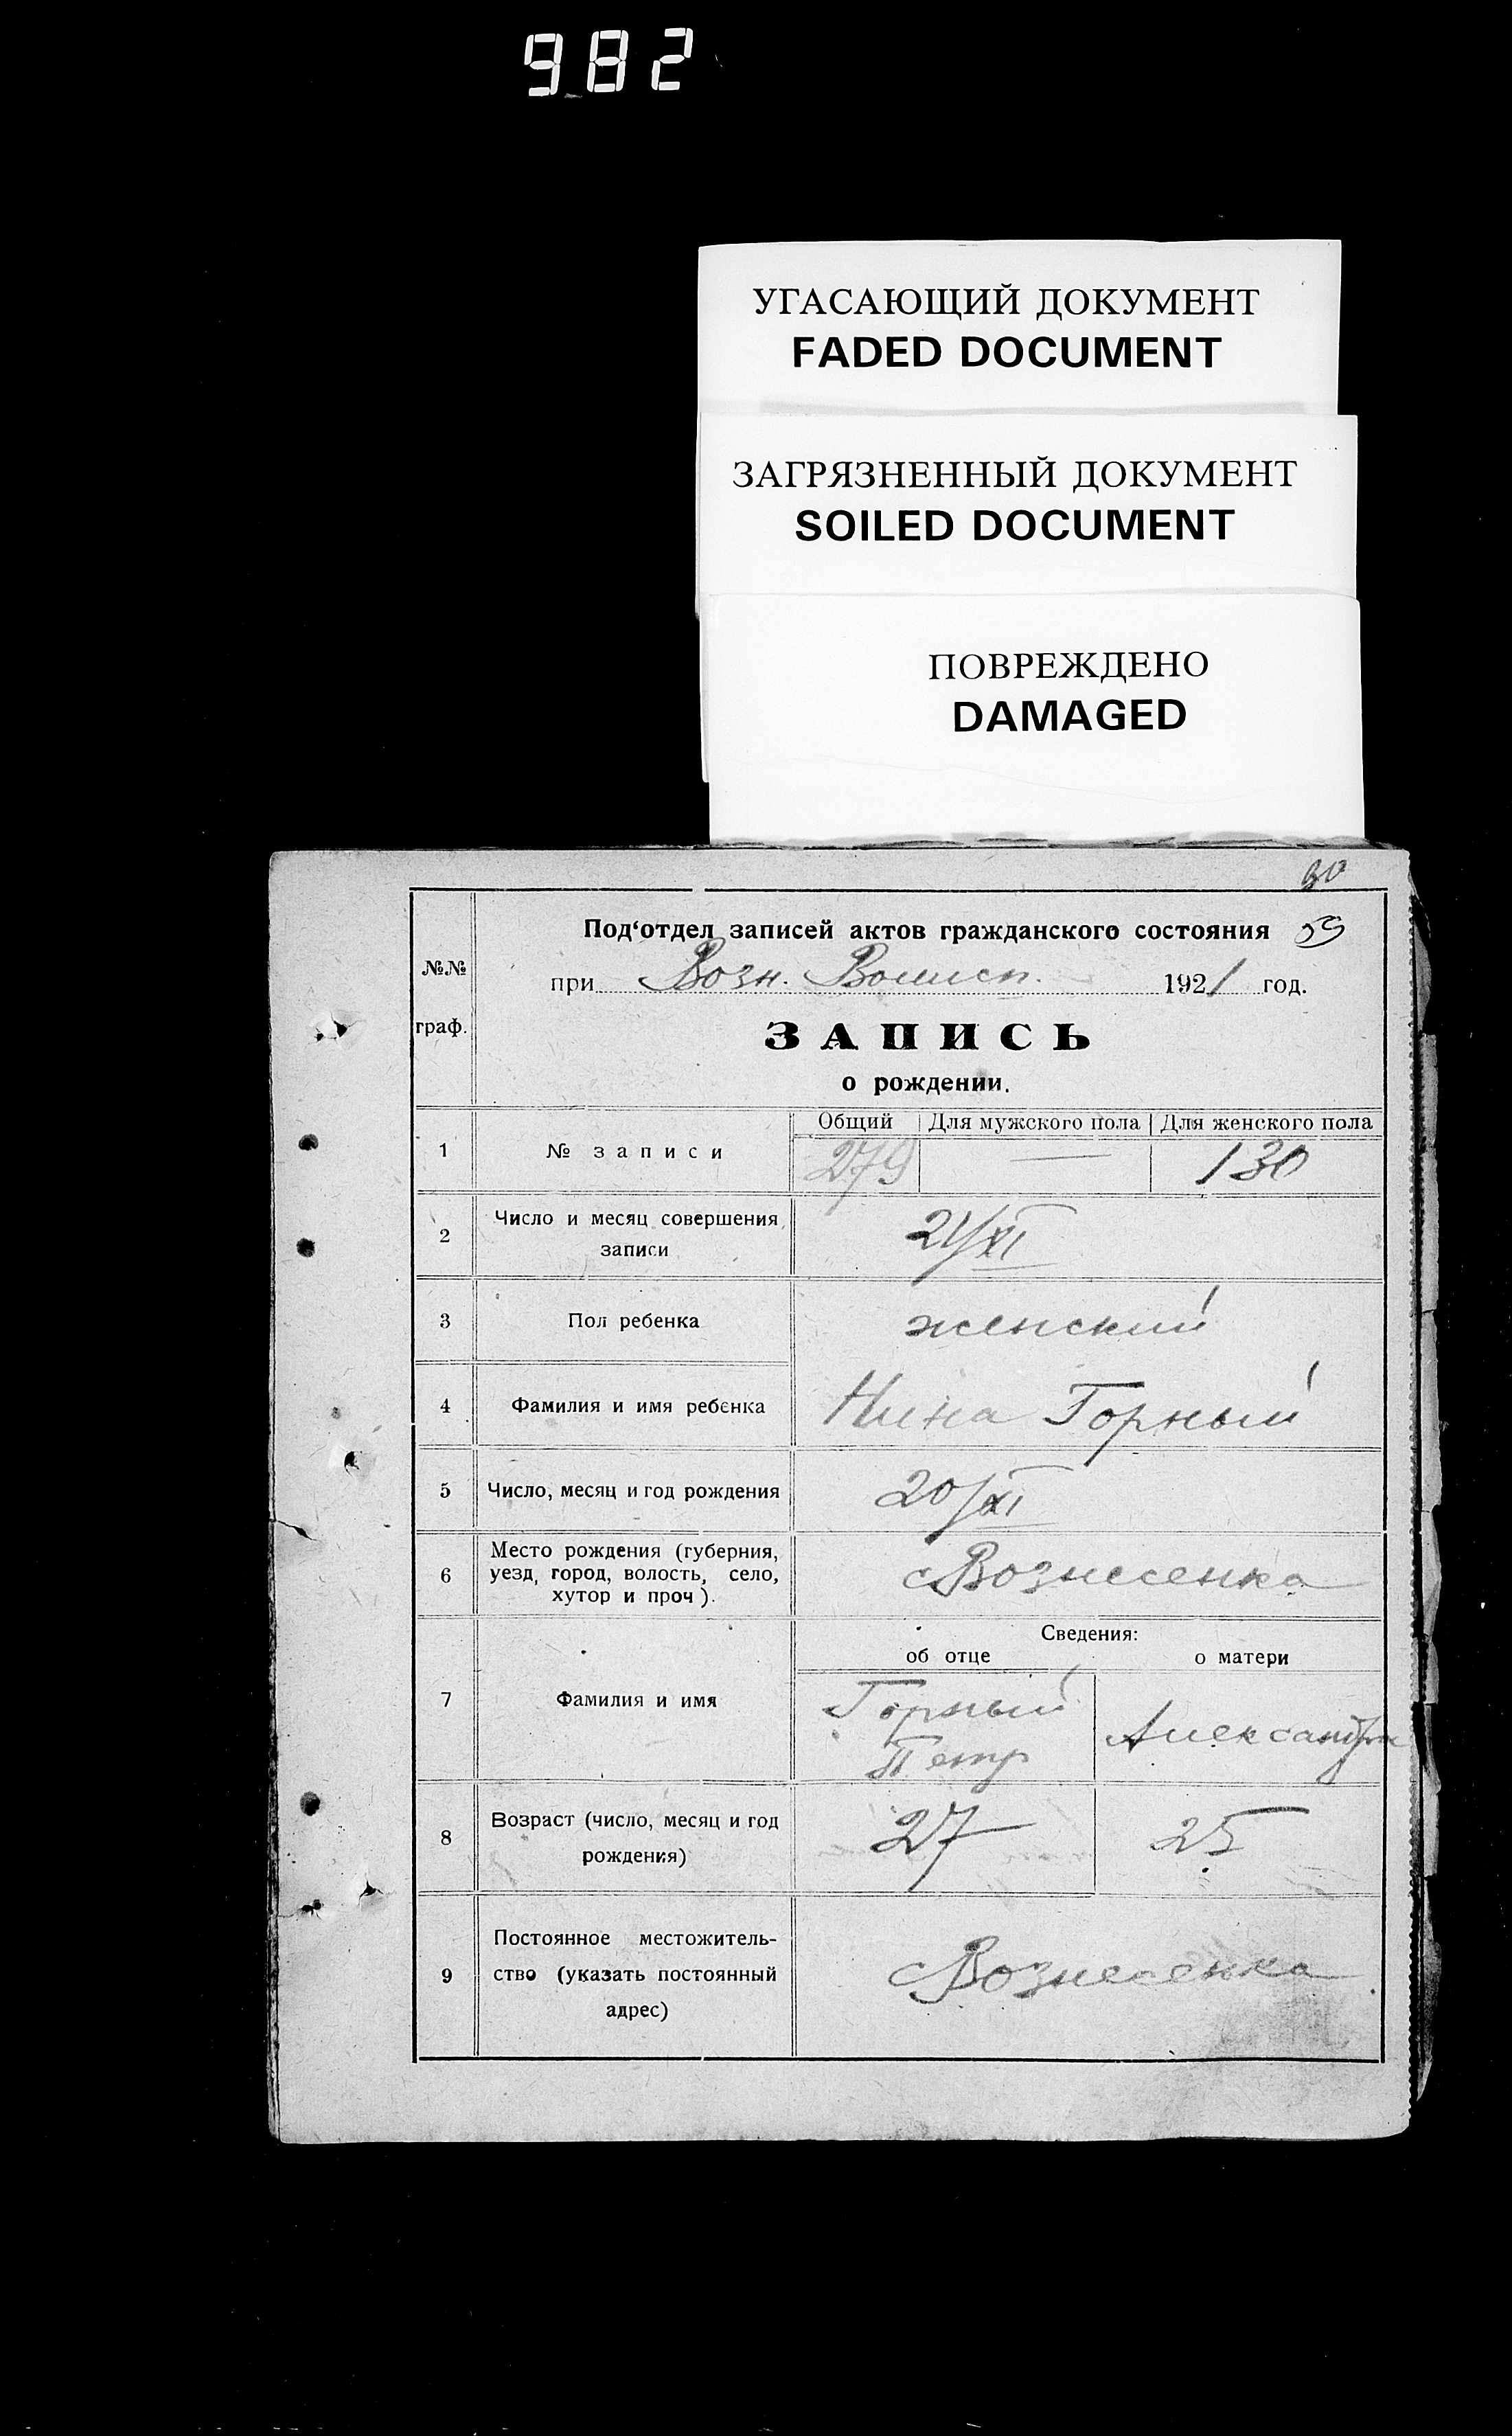 982
УГАСАЮЩИЙ ДОКУМЕНТ
FADED DOCUMENT
ЗАГРЯЗНЕННЫЙ ДОКУМЕНТ
SOILED DOCUMENT
ПОВРЕЖДЕНО
DAMAGED
Под‘отдел записей актов гражданского состояния 59
№№ граф.
при Возн. 1921 год.
ЗАПИСЬ
о рождении.
Общий Для мужского пола Для женского пола
1 № записи 279 — 130
2 Число и месяц совершения
записи 21/XI
3 Пол ребенка женский
4 Фамилия и имя ребенка Нина Горный
5 Число, месяц и год рождения 20/XI
6 Место рождения (губерния,
уезд, город, волость, село,
хутор и проч ). с Вознесенка
Сведения:
об отце о матери
7 Фамилия и имя Горный
Петр Александра
8 Возраст (число, месяц и год
рождения) 27 25
9 Постоянное местожитель-
ство (указать постоянный
адрес) с Вознесенка